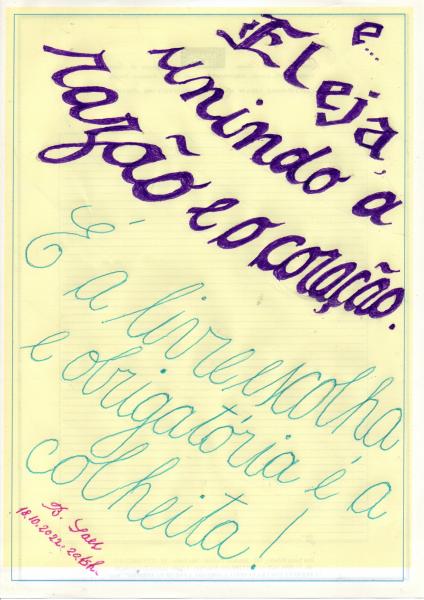 e...
Eleja,
unindo a
razão e o coração.
É a livre escolha
e obrigatória é a
colheita!
18.10.2022.